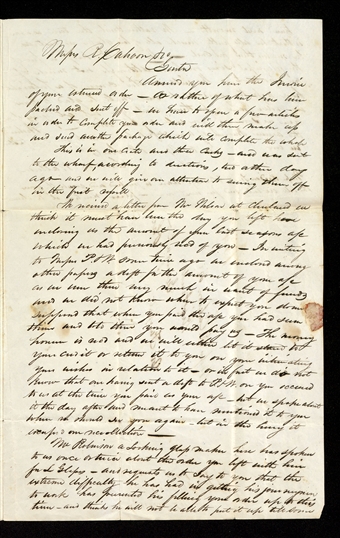 Messrs R. Cahoon & Co
Gents
Annexed you have the Invoice
of your esteemed order — or rather of what has been
packed and sent off — we have to open a few articles
in order to complete your order and shall then make up
and send another package which will complete the whole
This is in one crate and three Casks — and was sent
to the wharf, according to directions, two or three days
ago and we will give our attention to seeing them off
in the first
We received a letter from Mr at Cleveland we
think it must have been the day you left here
enclosing us the amount of your last seasons a/c
which we had previously recd of you — In writing
to Messrs P & W some time ago we enclosed among
other papers a dft for the amount of your a/c
as we were then very much in want of funds
and we did not know when to expect you down
supposed that when you paid this a/c you had seen
them and told them you would pay us — The money
however is recd and we will either let it stand to
your credit or return it to you on your intimating
your wishes in relation to it — or in fact we did not
know that our having sent a dft to P & W. on you occurred
to us at the time you paid us your a/c but we spoke about it
to the day after and meant to have mentioned it to you
when we should see you again but in the hurry it
escaped our recollection —
Mr Robinson a Looking glass maker here has spoken
to us once or twice about the order you left with him
for L Glasses — and requests us to say to you that the
extreme difficulty he has had in getting his journeymen
to work has prevented his filling your order up to this
time — and thinks he will not be able to put it up till some